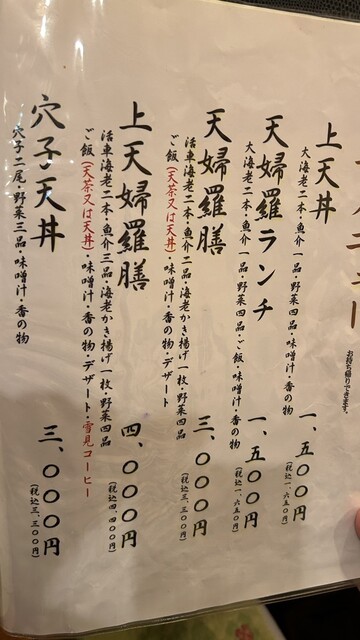 お持ち帰りできます。
上天丼
大海老二本・魚介一品・野菜四品・味噌汁・香の物
一、五〇〇円
(税込一、六五〇円)
天婦羅ランチ
大海老二本・魚介一品・野菜四品・ご飯・味噌汁・香の物
一、五〇〇円
(税込一、六五〇円)
天婦羅膳
活車海老二本・魚介二品・海老かき揚げ一枚・野菜四品
ご飯(天茶又は天丼)・味噌汁・香の物・デザート
三、〇〇〇円
(税込三、三〇〇円)
上天婦羅膳
活車海老二本・魚介三品・海老かき揚げ一枚・野菜四品
ご飯(天茶又は天丼)・味噌汁・香の物・デザート・雪見コーヒー
四、〇〇〇円
(税込四、四〇〇円)
穴子天丼
穴子二尾・野菜三品・味噌汁・香の物
三、〇〇〇円
(税込三、三〇〇円)